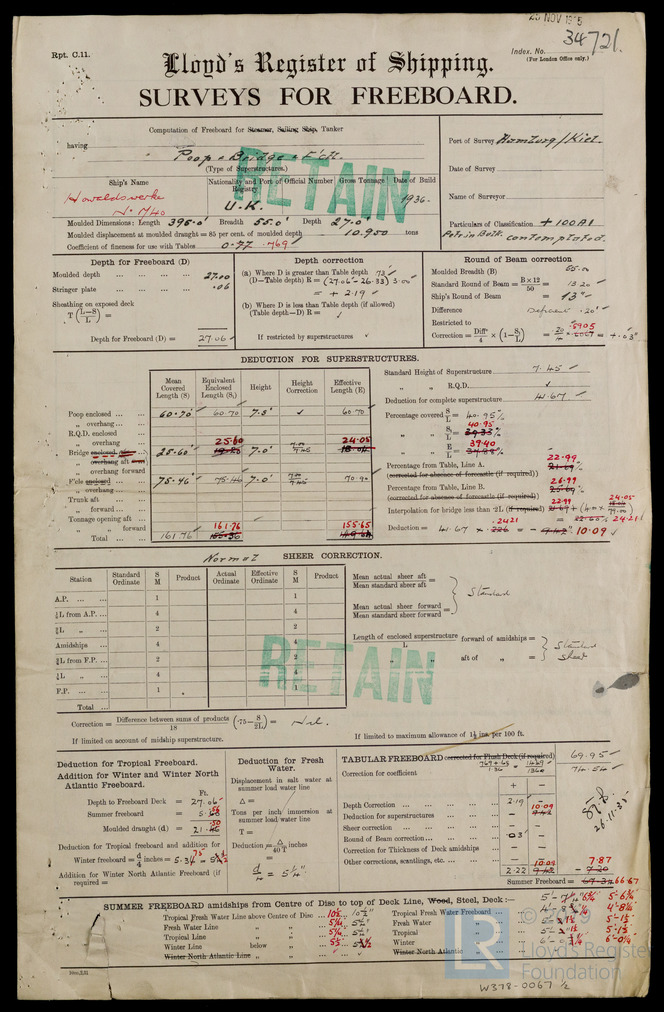 25 NOV 1935
Rpt. C.11.
Index. No. 34721.
(For London Office only.)
Lloyd's Register of Shipping.
SURVEYS FOR FREEBOARD.
Computation of Freeboard for Steamer, Sailing Ship, Tanker
having Poop + Bridge + F'cle.
(Type of Superstructures.)
RETAIN
Port of Survey Hamburg/Kiel.
Date of Survey
Name of Surveyor
Particulars of Classification + 100A1
Petr in Bulk. contemplated.
Ship's Name
Nationality and Port of Registry
Official Number
Gross Tonnage
Date of Build
Howaldswerke
No. 740
U.K.
1936.
Moulded Dimensions: Length 395.0' Breadth 55.0' Depth 27.0'
Moulded displacement at moulded draught = 85 per cent. of moulded depth 10.950 tons
Coefficient of fineness for use with Tables 0.77 .769
Depth for Freeboard (D)
Moulded depth ... 27.00
Stringer plate ... .06
Sheathing on exposed deck
T (L-S/L) =
Depth for Freeboard (D) = 27.06
Depth correction
(a) Where D is greater than Table depth 73
(D-Table depth) R = (27.06 - 26.33) 3.00
= + 2.19
(b) Where D is less than Table depth (if allowed)
(Table depth-D) R =
If restricted by superstructures
Round of Beam correction
Moulded Breadth (B) 55.00
Standard Round of Beam = B×12/50 = 13.20
Ship's Round of Beam = 13"
Difference Deficient .20"
Restricted to
Correction = Diff/4 × (1-S/L) = .20/4 × .6067 .5905 = +.03"
DEDUCTION FOR SUPERSTRUCTURES.
Mean Covered Length (S)
Equivalent Enclosed Length (S₁)
Height
Height Correction
Effective Length (E)
Poop enclosed ... 60.70 60.70 7.5' 60.70
„ overhang ...
R.Q.D. enclosed
„ overhang
Bridge enclosed 25.60 25.60 7.0' 7.00/7.45 24.05
„ overhang aft
„ overhang forward
F'cle enclosed ... 75.46 75.46 7.0' 7.00/7.45 70.90
„ overhang ...
Trunk aft ...
„ forward ...
Tonnage opening aft ...
„ „ forward
Total ... 161.76 161.76 155.65
Standard Height of Superstructure 7.45
„ „ R.Q.D.
Deduction for complete superstructure 41.67
Percentage covered S/L = 40.95%
„ „ S₁/L = 40.95 39.33%
„ „ E/L = 39.40%
Percentage from Table, Line A. 22.99
(corrected for absence of forecastle (if required)) 21.69%
Percentage from Table, Line B. 26.99
(corrected for absence of forecastle (if required)) 25.69%
Interpolation for bridge less than ·2L (if required) 22.99
= 22.60% 24.21%
Deduction = 41.67 × .2421 = - 10.09
Normal SHEER CORRECTION.
Station
Standard Ordinate
S M
Product
Actual Ordinate
Effective Ordinate
S M
Product
A.P. ... 1 1
⅙L from A.P. ... 4 4
⅓L „ 2 2
Amidships 4 4
⅓L from F.P. ... 2 2
⅙L „ 4 4
F.P. ... 1 1
Total ...
RETAIN
Mean actual sheer aft
Mean standard sheer aft =
Standard
Mean actual sheer forward
Mean standard sheer forward =
Length of enclosed superstructure/L forward of amidships =
„ „ aft of „ =
Standard sheer
Correction = Difference between sums of products/18 (·75 - S/2L) = Nil.
If limited on account of midship superstructure.
If limited to maximum allowance of 1½ ins. per 100 ft.
Deduction for Tropical Freeboard.
Addition for Winter and Winter North
Atlantic Freeboard.
Ft.
Depth to Freeboard Deck = 27.06
Summer freeboard = 5.56
Moulded draught (d) = 21.50
Deduction for Tropical freeboard and addition for
Winter freeboard = d/4 inches =
Addition for Winter North Atlantic Freeboard (if
required) =
Deduction for Fresh
Water.
Displacement in salt water at
summer load water line
Δ =
Tons per inch immersion at
summer load water line
T =
Deduction = Δ/40T inches
=
d/4 = 5¼"
TABULAR FREEBOARD corrected for Flush Deck (if required) 69.95
Correction for coefficient .769+.68/1.36 = 74.54
+ −
Depth Correction ... 2.19
Deduction for superstructures ... 10.09
Sheer correction ...
Round of Beam correction... .03
Correction for Thickness of Deck amidships
Other corrections, scantlings, etc. ...
2.22 10.09 7.87
Summer Freeboard = 66.67
26.11.35
SUMMER FREEBOARD amidships from Centre of Disc to top of Deck Line, Wood, Steel, Deck:— 5'-6¾"
Tropical Fresh Water Line above Centre of Disc ... 10½"
Fresh Water Line „ „ ... 5¼"
Tropical Line „ „ ... 5¼"
Winter Line below „ ...
Winter North Atlantic Line „ „ ...
Tropical Fresh Water Freeboard 4'-8¼"
Fresh Water „ 5'-1½"
Tropical „ 5'-1½"
Winter „ 6'-0¼"
Winter North Atlantic „
LR
© 2019
Lloyd's Register
Foundation
W378-0067 ½